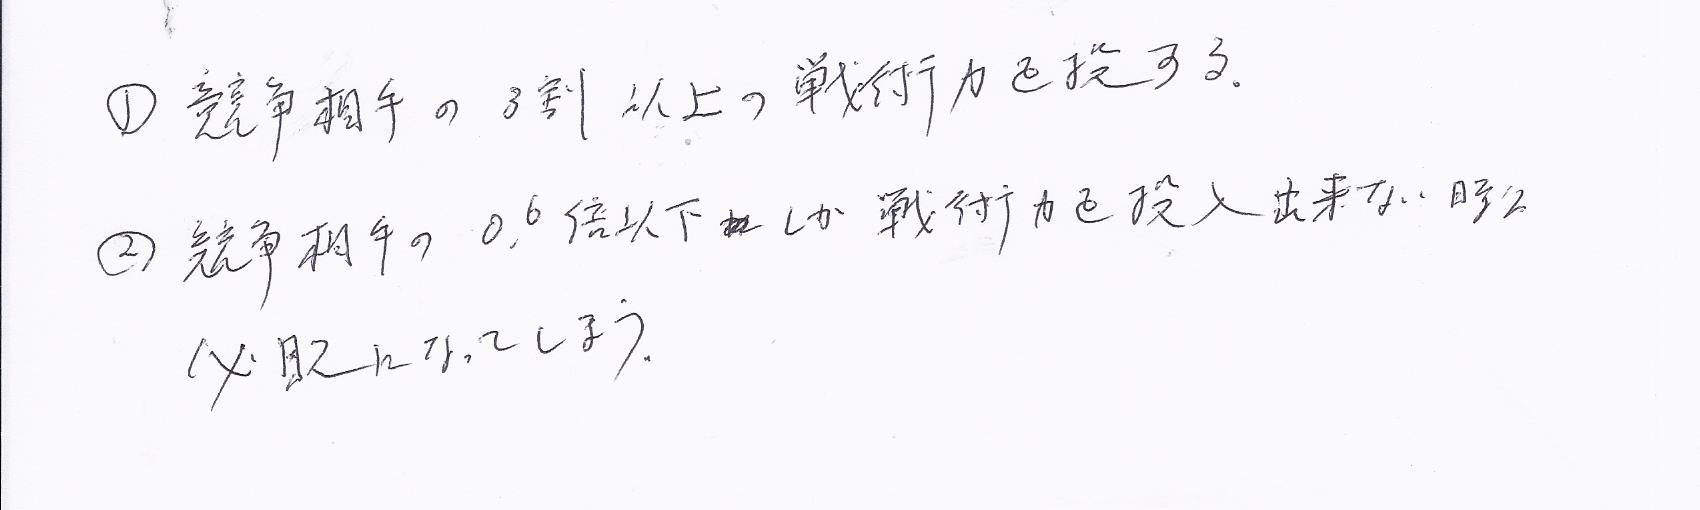 ① 競争相手の3割以上の戦術力を投する.
② 競争相手の0.6倍以下しか戦術力を投入出来ない時は
必敗になってしまう.